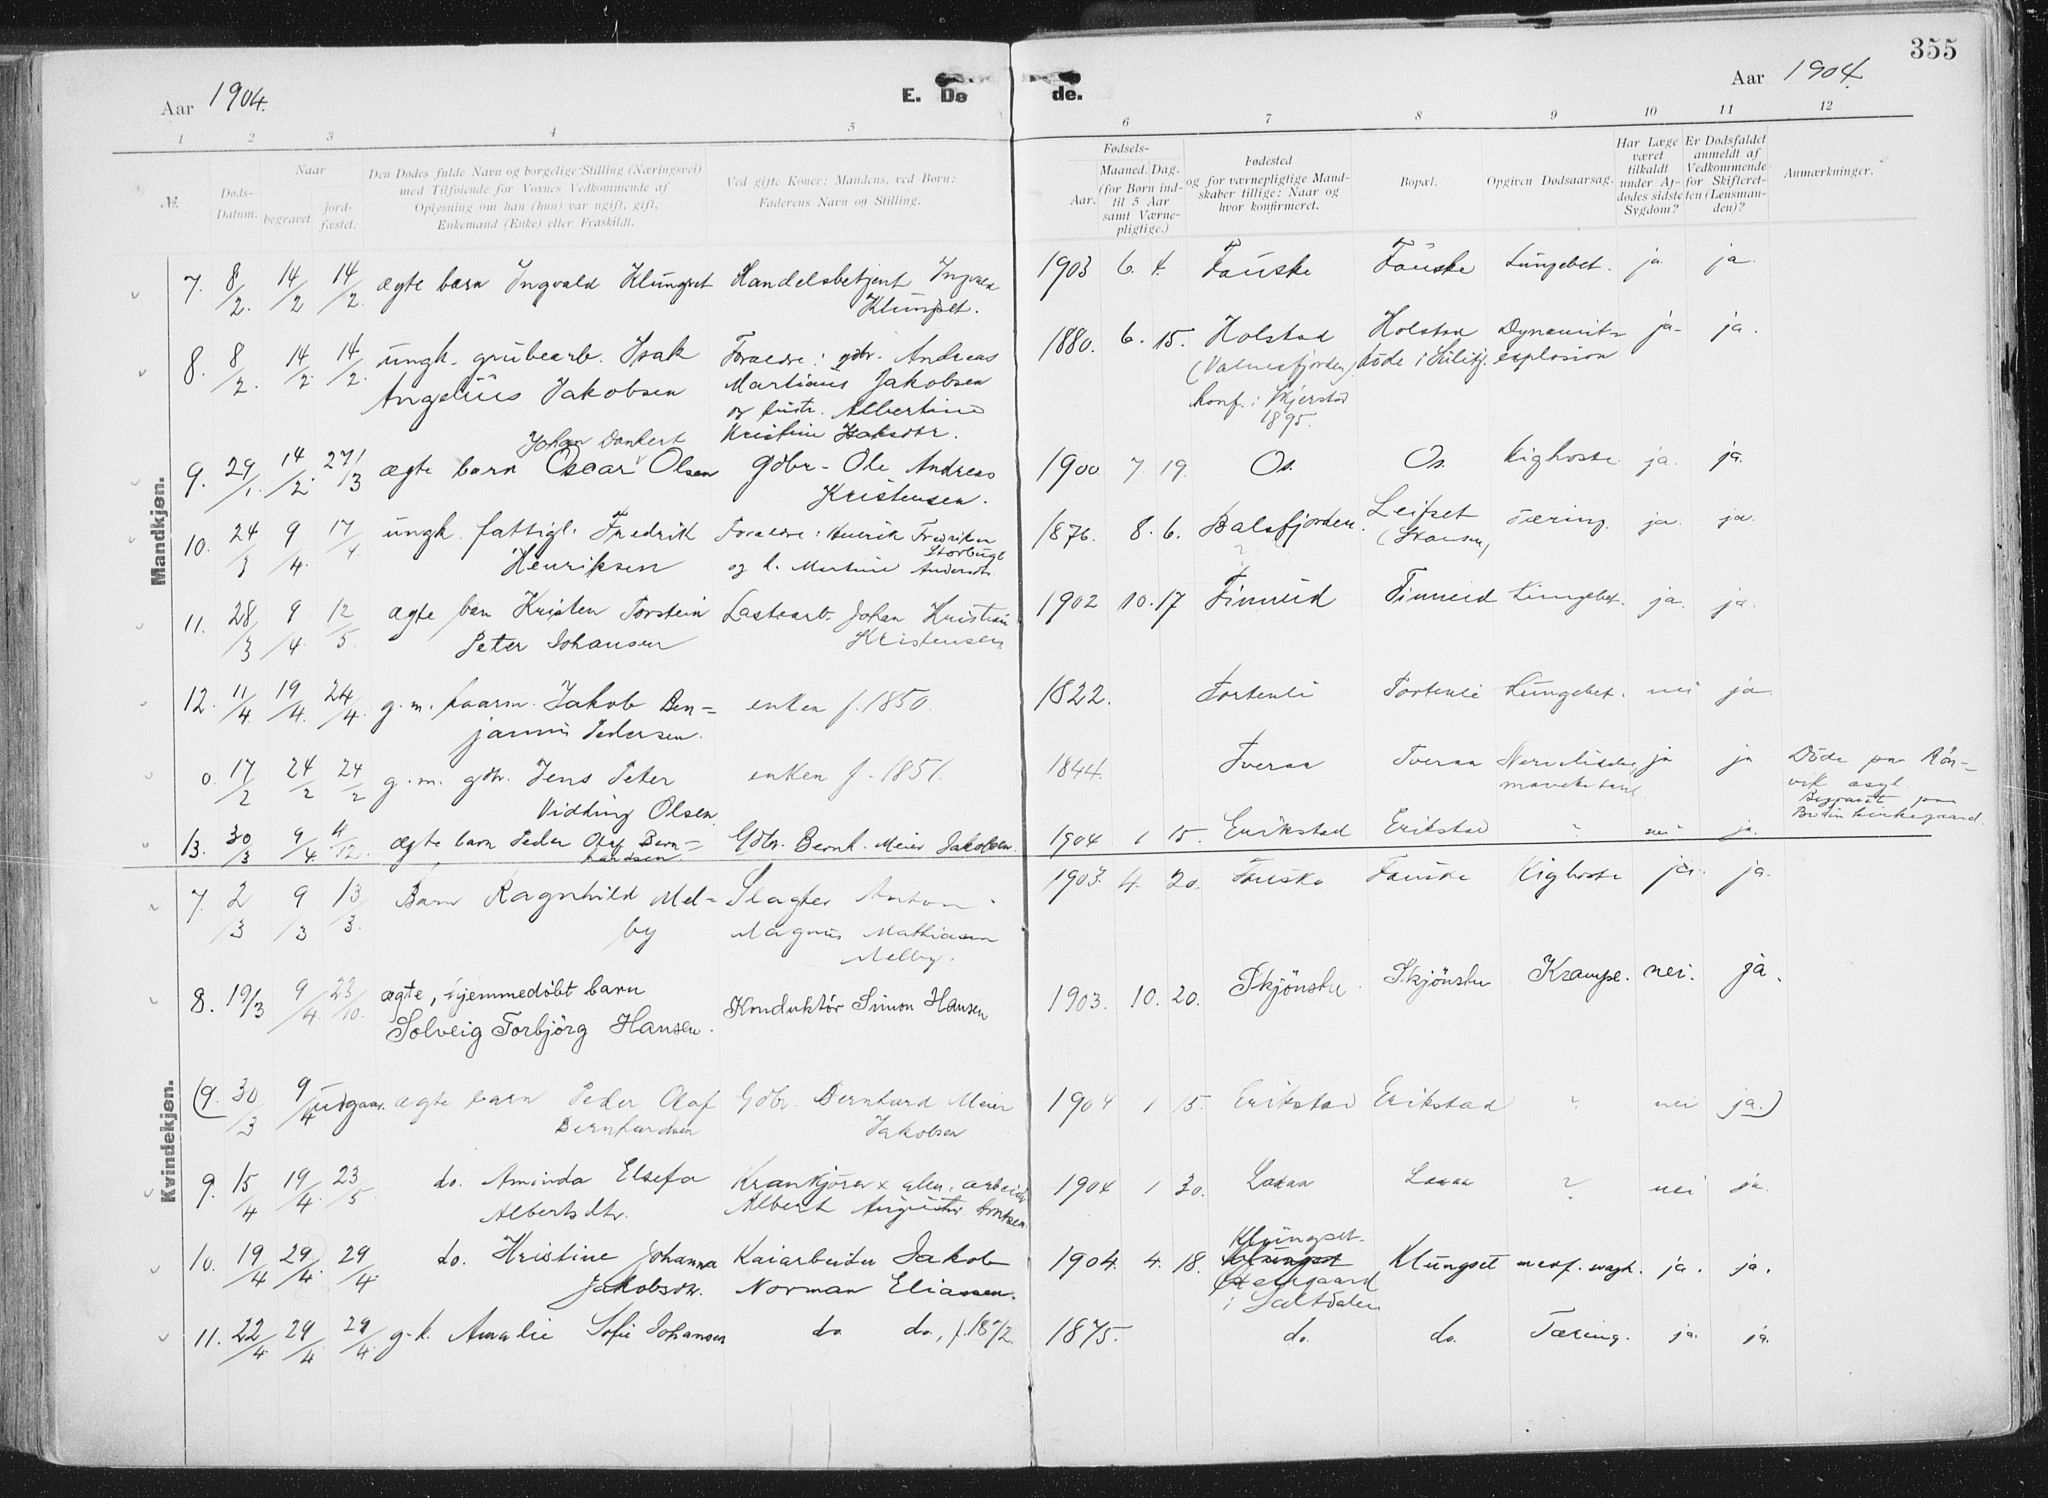 355
Aar 1904.
E. Dø de.
Aar 1904.
1 2 3 4 5 6 7 8 9 10 11 12
№.
Døds-Datum.
Naar
begravet
jord-fæstet.
Den Dødes fulde Navn og borgelige Stilling (Næringsvei)
med Tilføiende for Voxnes Vedkommende af
Oplysning om han (hun) var ugift, gift,
Enkemand (Enke) eller Fraskildt.
Ved gifte Koner: Mandens, ved Børn:
Faderens Navn og Stilling.
Fødsels-
Aar.
Maaned. Dag.
(for Børn ind-
til 5 Aar
samt Værne-
pligtige.)
Fødested
og for værnepligtige Mand-
skaber tillige: Naar og
hvor konfirmeret.
Bopæl.
Opgiven Dødsaarsag.
Har Læge
været
tilkaldt
under Af-
dødes sidste
Sygdom?
Er Dødsfaldet
anmeldt af
Vedkommende
for Skifteret-
ten (Lensman-
den)?
Anmærkninger.
Mandkjøn.
7. 8/2. 14/2 14/2. ægte barn Ingvald Klungset Handelsbetjent Ingvald 1903 6. 4. Fauske Fauske Lungebet. ja ja.
Klungset.
8. 8/2. 14/2. 14/2. ungk. grubearb. Isak Forældre: gdbr. Andreas 1880. 6. 15. Holstad Holstad Dynamit- ja- ja.
Angelius Jakobsen Martinus Jakobsen (Valnesfjorden) døde i Sulitj. explosion
og hustr. Albertine Konf. i Skjerstad
Kristine Isaksdtr. 1895.
Johan Dankert
9. 29/1. 14/2. 27/3 ægte barn Oscar Olsen Gdbr. Ole Andreas 1900. 7. 19. Os. Os. Kighoste ja. ja.
Kristensen.
10. 24/3 9/4. 17/4 ungk. fattigl. Fredrik Forældre: Henrik Fredriksen 1876. 8. 6. Balsfjorden. Leifset Tæring. ja. ja.
Henriksen og h. Martine Andersdtr. ?
11. 28/3 9/4. 12/5. ægte barn Kristen Torstein Lastearb. Johan Kristian 1902 10. 17 Finneid Finneid Lungebet. ja. ja.
Peter Johansen Kristensen
12. 11/4. 19/4. 24/4. g. m. kaarm. Jakob Ben- enken f. 1850. 1822. Tortenli Tortenli Lungebet. nei ja
jamin Pedersen.
0. 17/2 24/2 24/2 g. m. gdbr. Jens Peter enken f. 1851. 1844. Tveraa Tveraa ja ja Døde paa Røn-
Vidding Olsen. vik asyl
Begravet paa
Bodin kirkegaard.
13. 30/3 9/4 4/12. ægte barn Peder Olaf Bern- Gdbr. Bernh. Meier Jakobsen. 1904 1 15. Erikstad Erikstad ? nei ja.
hardsen
Kvindekjøn.
7. 2/3 9/3 13/3. Barn Ragnhild Mel- Slagter Anton 1903. 4. 20. Fauske Fauske Kighoste ja. ja.
by Magnus Mathiasen
Melby.
8. 19/3 9/4 23/10. ægte, hjemmedøbt barn Konduktør Simon Hansen 1903. 10. 20. Skjönstu. Skjönstu Krampe. nei. ja.
Solveig Torbjörg Hansen.
(9. 30/3 9/4 udgaar. ægte barn Peder Olaf Gdbr. Bernhard Meier 1904 1 15. Erikstad Erikstad ? nei ja.)
Bernhardsen Jakobsen
9. 15/4 19/4. 23/5. do. Aminda Elsefa Krankjörer x elm. arbeider 1904 1 30. Laxaa Laxaa ? nei ja.
Albertsdtr. Albert Augustin Arntsen
10. 19/4 29/4. 29/4. do. Kristine Johanna Kaiarbeider Jakob 1904. 4. 18. Klungset Klungset ja. ja.
Jakobsdtr. Norman Eliassen. i Saltdalen
11. 22/4. 29/4. 29/4. g. k. Amalie Sofie Johansen do do., f. 1872. 1875. do. do. Tæring. ja. ja.